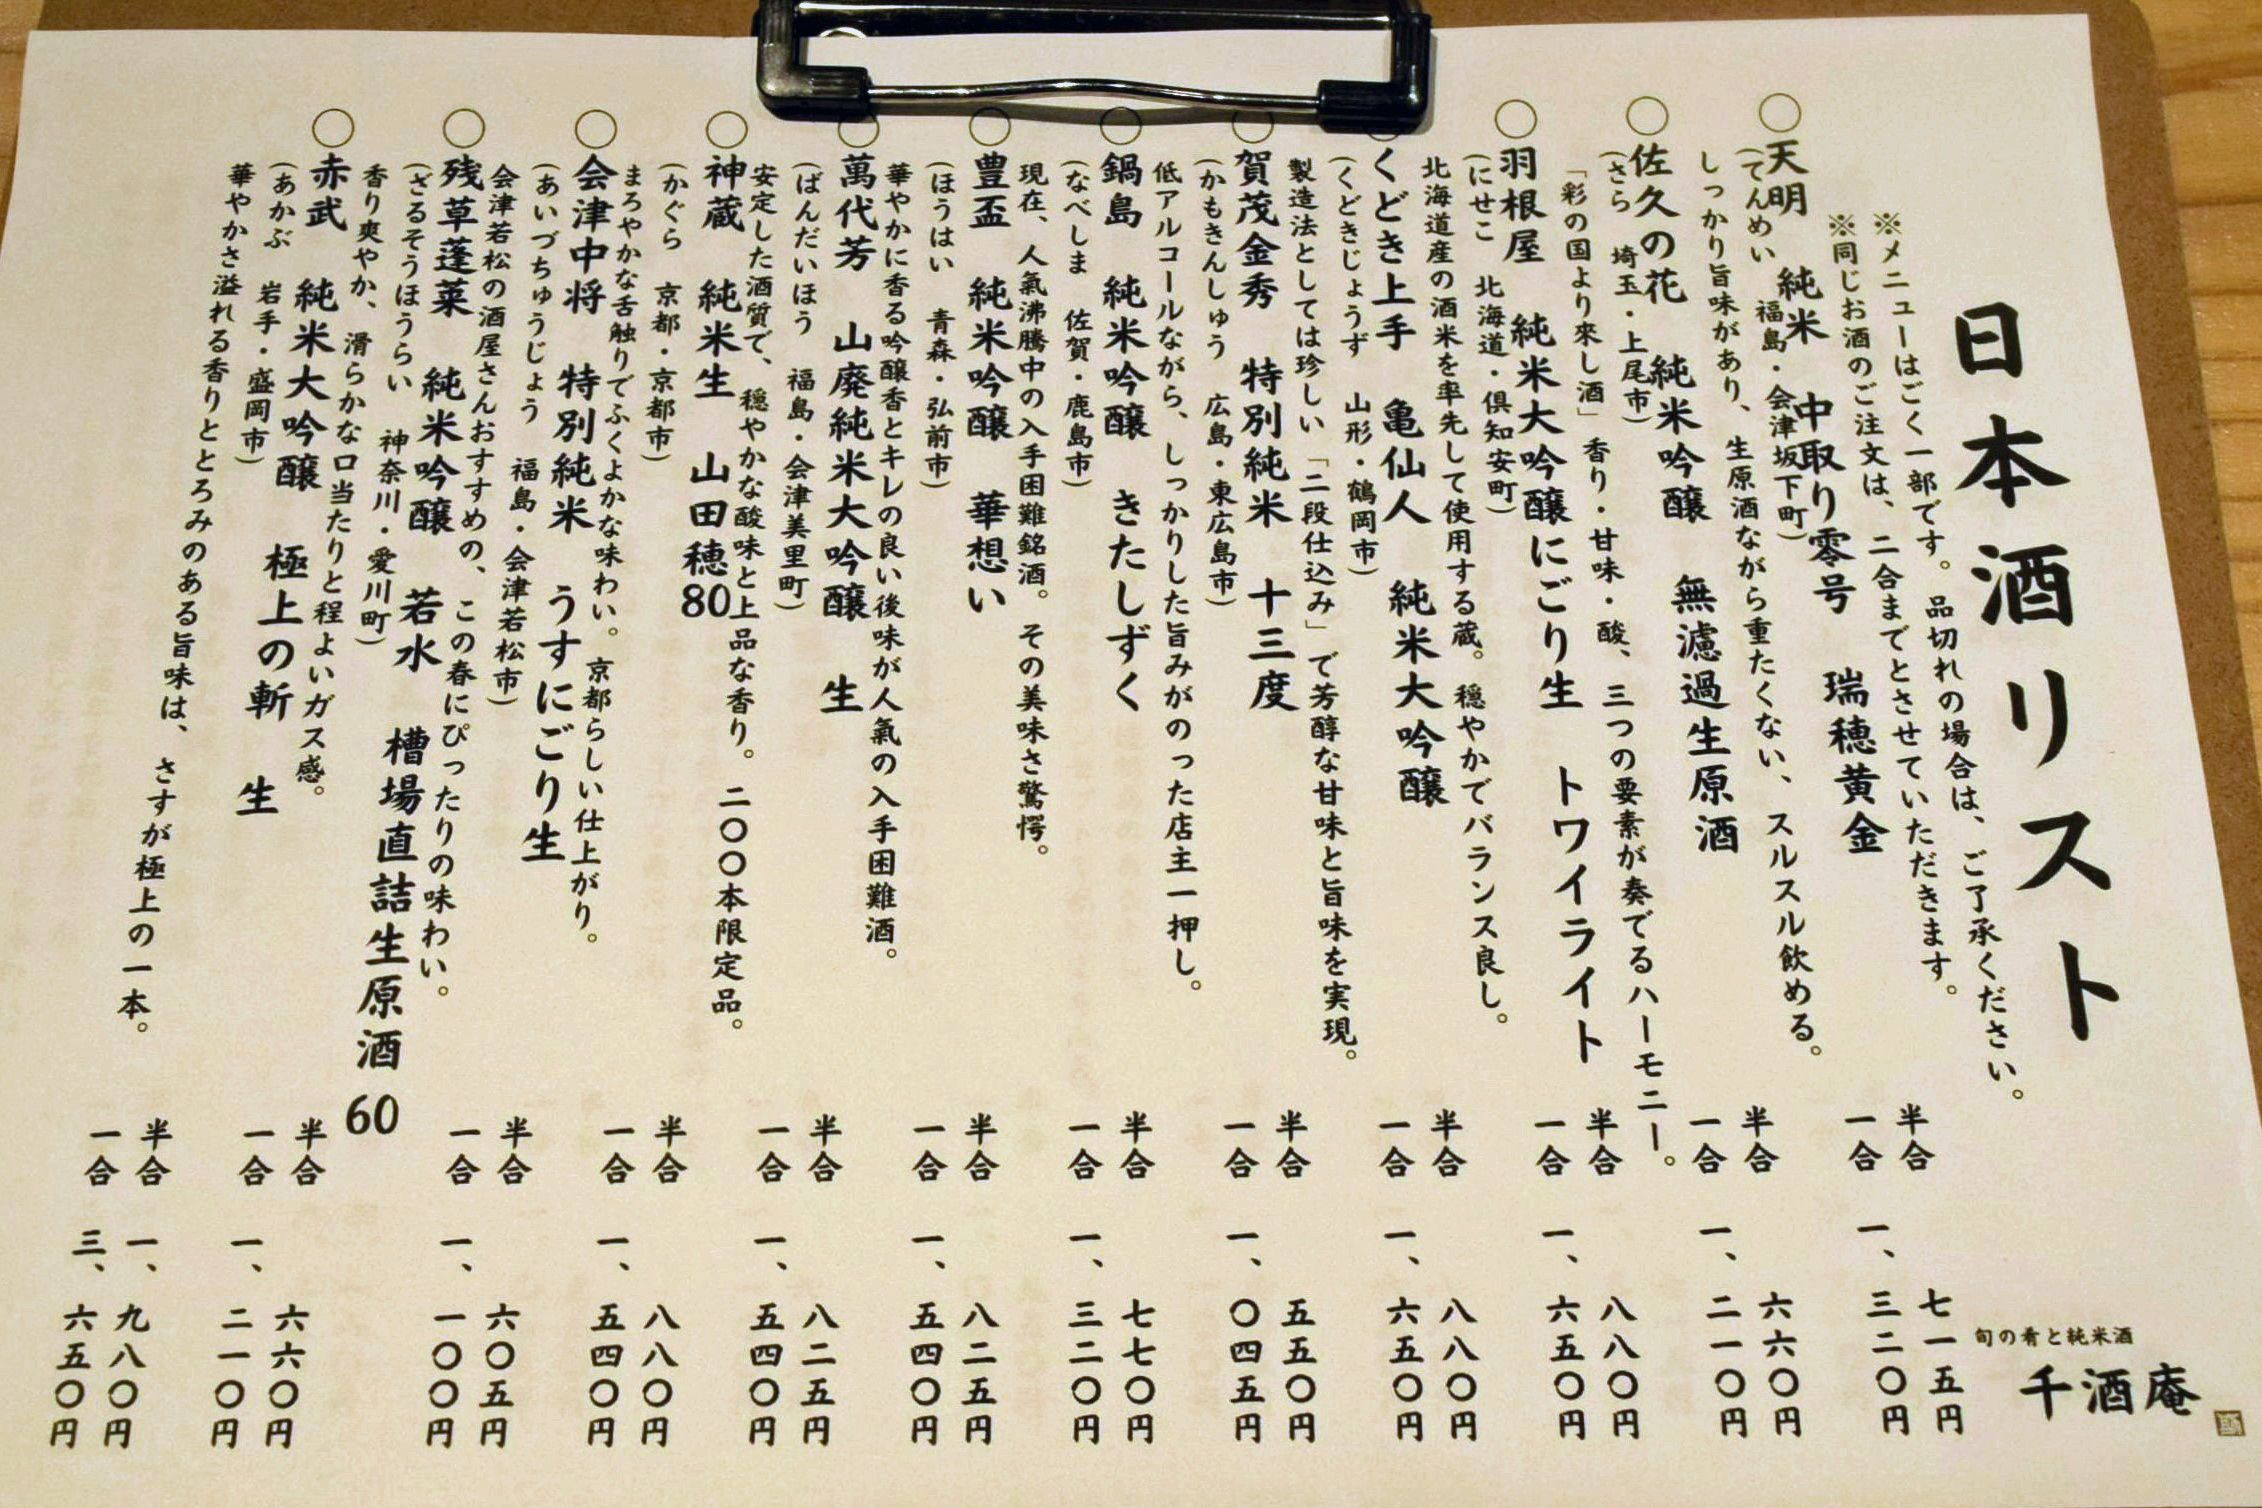 日本酒リスト
※メニューはごく一部です。品切れの場合は、ご了承ください。
※同じお酒のご注文は、二合までとさせていただきます。
○天明 純米 中取り零号 瑞穂黄金
半合 七一五円
(てんめい 福島・会津坂下町)
一合 一、三二〇円
しっかり旨味があり、生原酒ながら重たくない、スルスル飲める。
○佐久の花 純米吟醸 無濾過生原酒
半合 六六〇円
(さら 埼玉・上尾市)
一合 一、二一〇円
「彩の国より來し酒」香り・甘味・酸、三つの要素が奏でるハーモニー。
○羽根屋 純米大吟醸にごり生 トワイライト
半合 八八〇円
(にせこ 北海道・倶知安町)
一合 一、六五〇円
北海道産の酒米を率先して使用する蔵。穏やかでバランス良し。
○くどき上手 亀仙人 純米大吟醸
半合 八八〇円
(くどきじょうず 山形・鶴岡市)
一合 一、六五〇円
製造法としては珍しい「二段仕込み」で芳醇な甘味と旨味を実現。
○賀茂金秀 特別純米 十三度
半合 五五〇円
(かもきんしゅう 広島・東広島市)
一合 一、〇四五円
低アルコールながら、しっかりした旨みがのった店主一押し。
○鍋島 純米吟醸 きたしずく
半合 七七〇円
(なべしま 佐賀・鹿島市)
一合 一、三二〇円
現在、人氣沸騰中の入手困難銘酒。その美味さ驚愕。
○豊盃 純米吟醸 華想い
半合 八二五円
(ほうはい 青森・弘前市)
一合 一、五四〇円
華やかに香る吟醸香とキレの良い後味が人氣の入手困難酒。
○萬代芳 山廃純米大吟醸 生
半合 八二五円
(ばんだいほう 福島・会津美里町)
一合 一、五四〇円
安定した酒質で、穏やかな酸味と上品な香り。二〇〇本限定品。
○神蔵 純米生 山田穂80
半合 八八〇円
(かぐら 京都・京都市)
一合 一、五四〇円
まろやかな舌触りでふくよかな味わい。京都らしい仕上がり。
○会津中将 特別純米 うすにごり生
半合 六〇五円
(あいづちゅうじょう 福島・会津若松市)
一合 一、一〇〇円
会津若松の酒屋さんおすすめの、この春にぴったりの味わい。
○残草蓬莱 純米吟醸 若水 槽場直詰生原酒 60
半合 六六〇円
(ざるそうほうらい 神奈川・愛川町)
一合 一、二一〇円
香り爽やか、滑らかな口当たりと程よいガス感。
○赤武 純米大吟醸 極上の斬 生
半合 一、九八〇円
(あかぶ 岩手・盛岡市)
一合 三、六五〇円
華やかさ溢れる香りととろみのある旨味は、さすが極上の一本。
旬の肴と純米酒
千酒庵